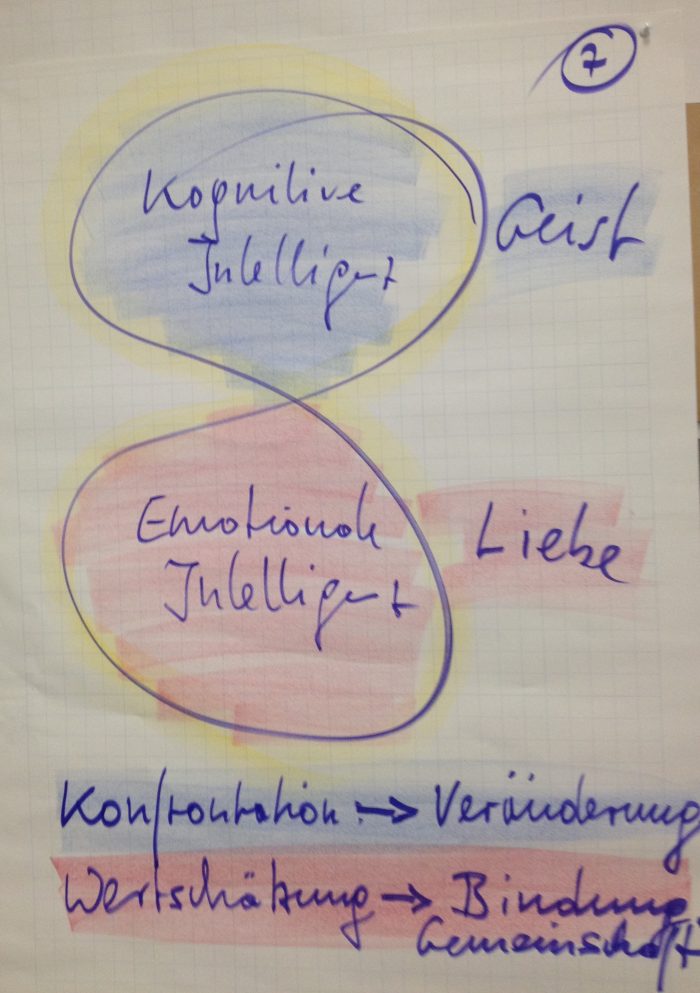 7
Kognitive
Intelligenz
Geist
Emotionale
Intelligenz
Liebe
Konfrontation → Veränderung
Wertschätzung → Bindung
Gemeinschaft